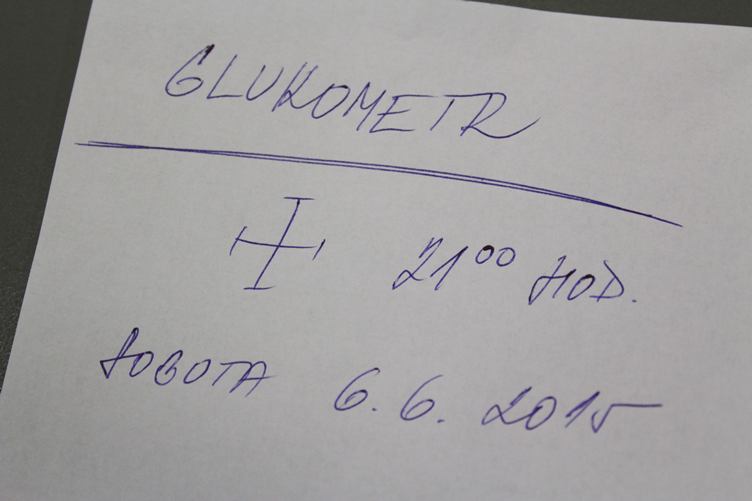 GLUKOMETR
21⁰⁰ HOD.
SOBOTA 6.6.2015